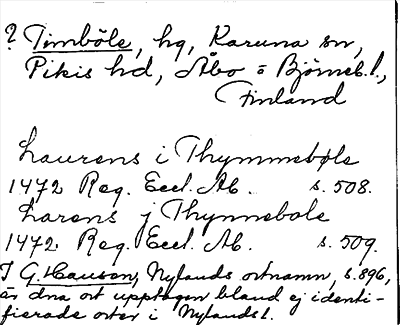 ? Timböle, hg, Karuna sn,
Pikis hd, Åbo o Björneb. l.,
Finland
Laurens i Thymmebøle
1472 Reg. Eccl. Ab. s. 508.
Larens j Thynnebole
1472 Reg. Eccl. Ab. s. 509.
I G. Hausen, Nylands ortnamn, s. 896,
är dna ort upptagen bland ej identi-
fierade orter i Nylands l.